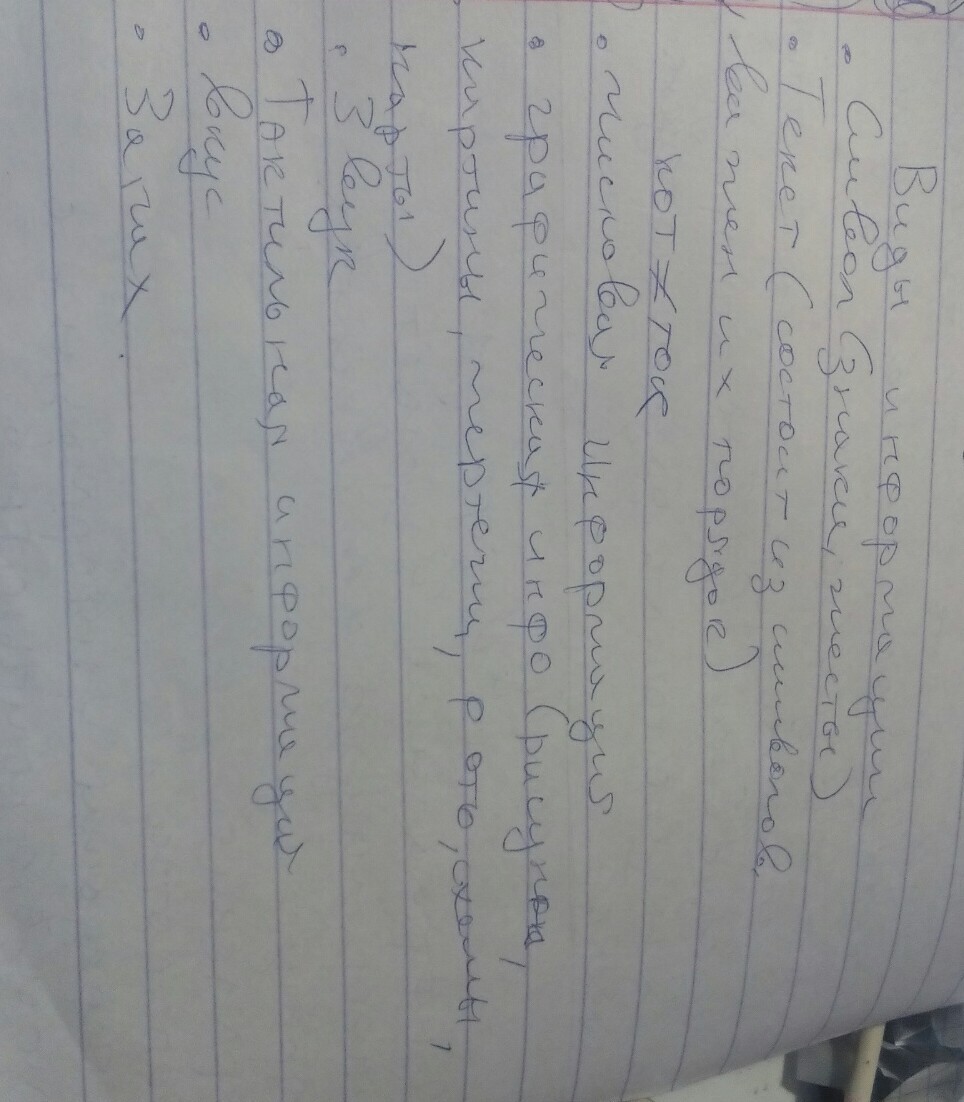 Виды информации
• Символ (Знаки, жесты)
• Текст (состоит из символов,
важен их порядок)
кот ≠ ток
• числовая Информация
• графическая инфо (рисунок,
картины, чертежи, фото, схемы,
карты)
• Звук
• Тактильная информация
• Вкус
• Запах.